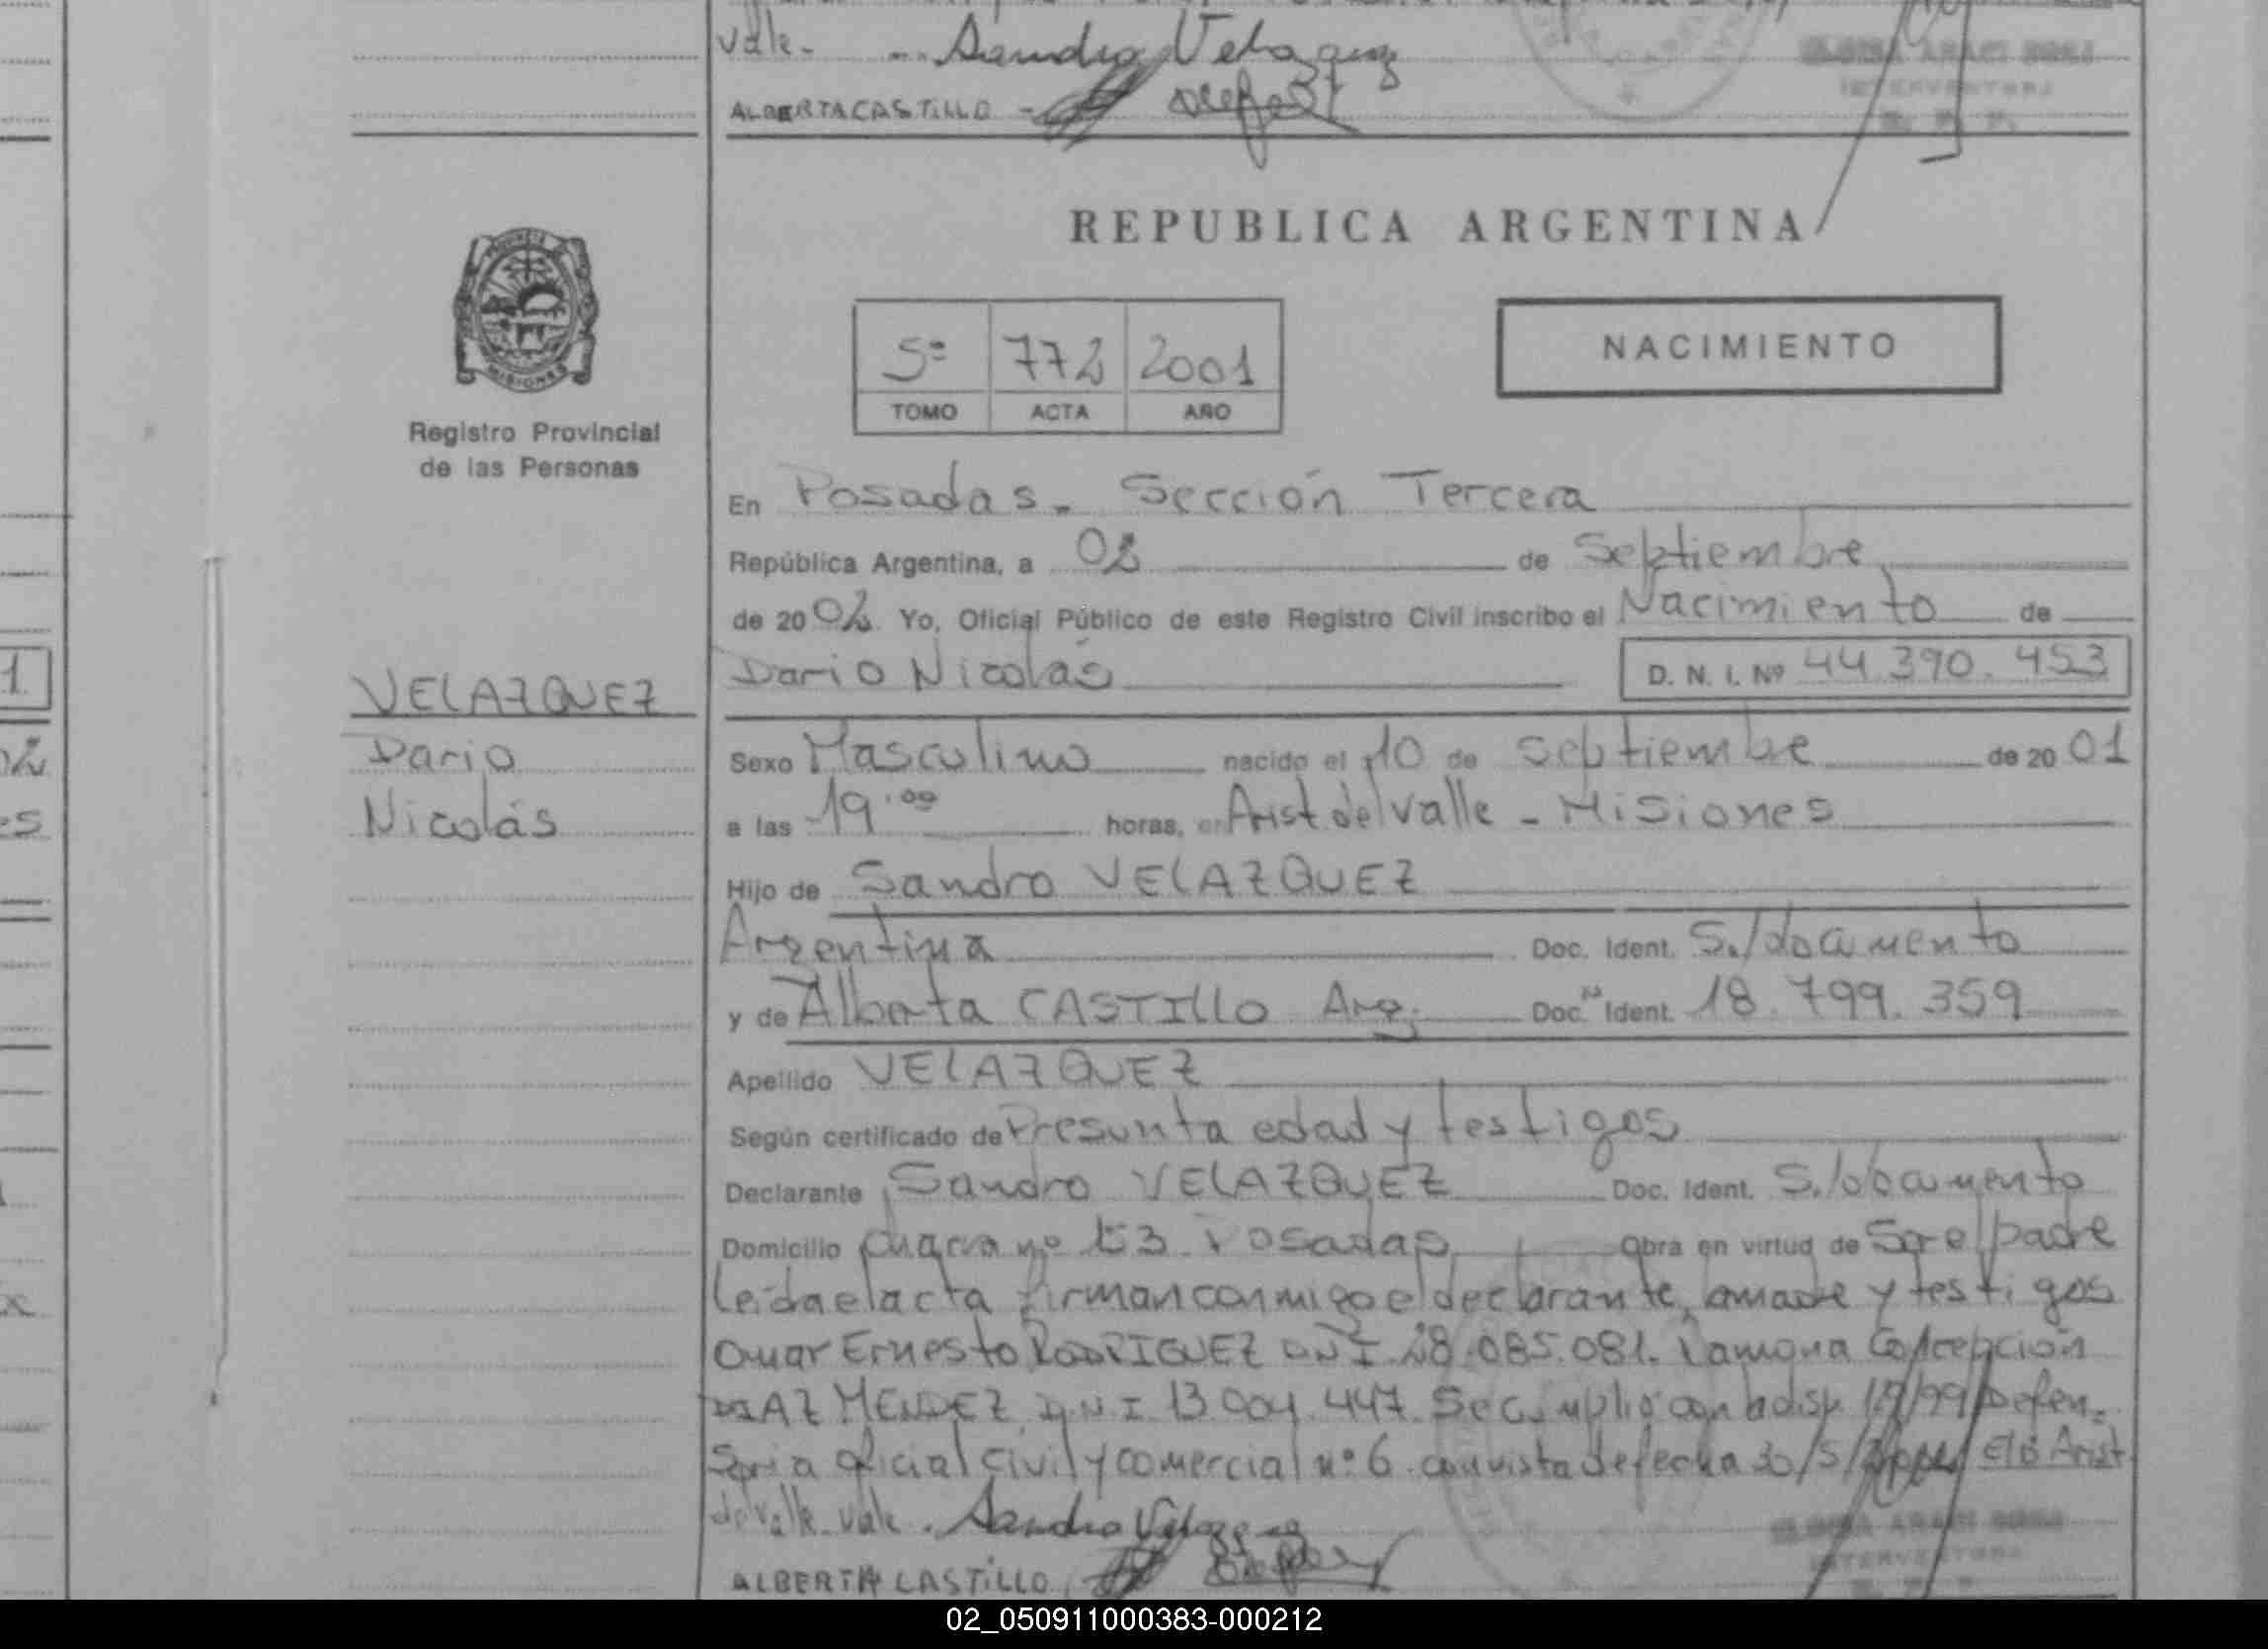 vale. Sandro Velazquez
ALBERTA CASTILLO
REPUBLICA ARGENTINA
MISIONES
Registro Provincial
de las Personas
5º 772 2001
TOMO ACTA AÑO
NACIMIENTO
En Posadas. Sección Tercera
República Argentina, a 02 de Septiembre
de 2002. Yo, Oficial Público de este Registro Civil inscribo el Nacimiento de
Dario Nicolás D. N. I. Nº 44.390.453
VELAZQUEZ
Dario
Nicolás
Sexo Masculino nacido el 10 de Septiembre de 20 01
a las 19.00 horas, en Arist. del Valle - Misiones
Hijo de Sandro VELAZQUEZ
Argentina Doc. Ident. S./documento
y de Alberta CASTILLO Arg. Doc. Ident. 18.799.359
Apellido VELAZQUEZ
Según certificado de Presunta edad y testigos
Declarante Sandro VELAZQUEZ Doc. Ident. S./documento
Domicilio chacra nº 153 Posadas Obra en virtud de Ser el padre
Leída el acta firman conmigo el declarante, madre y testigos
Omar Ernesto RODRIGUEZ DNI 28.085.081. Ramona Concepción
DIAZ MENDEZ D.N.I. 13.004.447. Se cumplió con la disp. /99 Defen-
soria oficial civil y comercial nº 6. con vista de fecha 30/5/ E/B Arist
del valle. vale. Sandro Velazquez
ALBERTA CASTILLO
INTERVENTORA
02_050911000383-000212